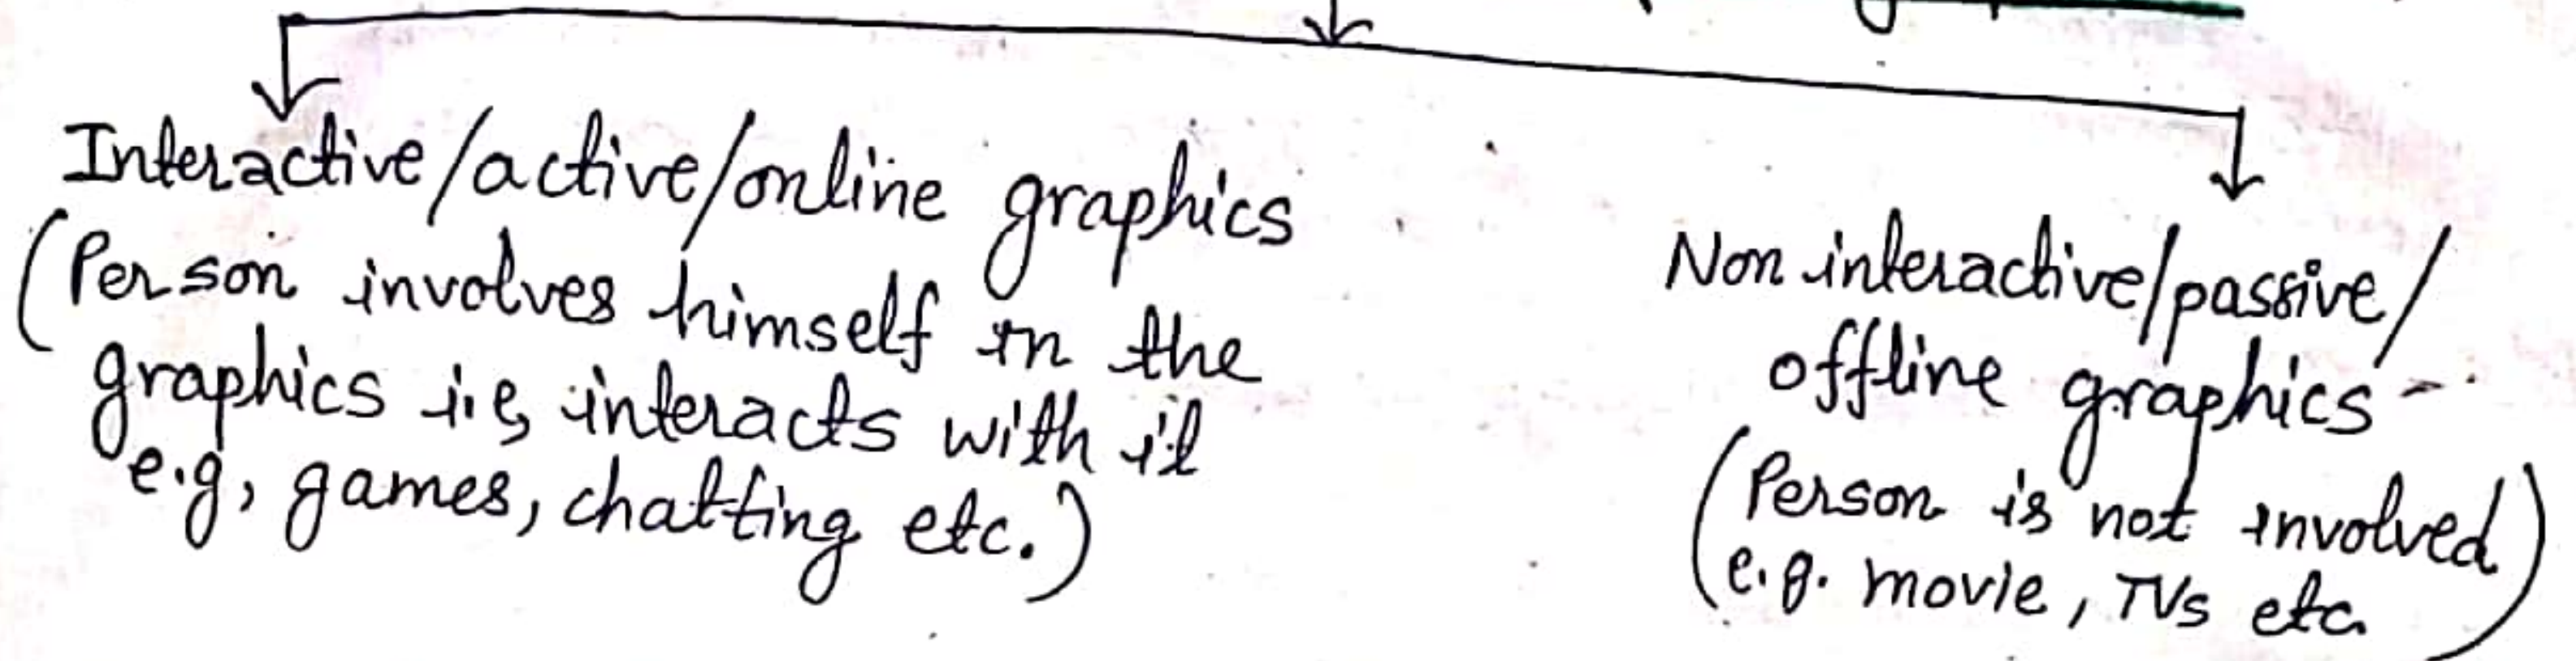 Interactive/active/online graphics
(Person involves himself in the
graphics i.e, interacts with it
e.g, games, chatting etc.)
Non interactive/passive/
offline graphics
(Person is not involved
e.g. movie, TVs etc.)